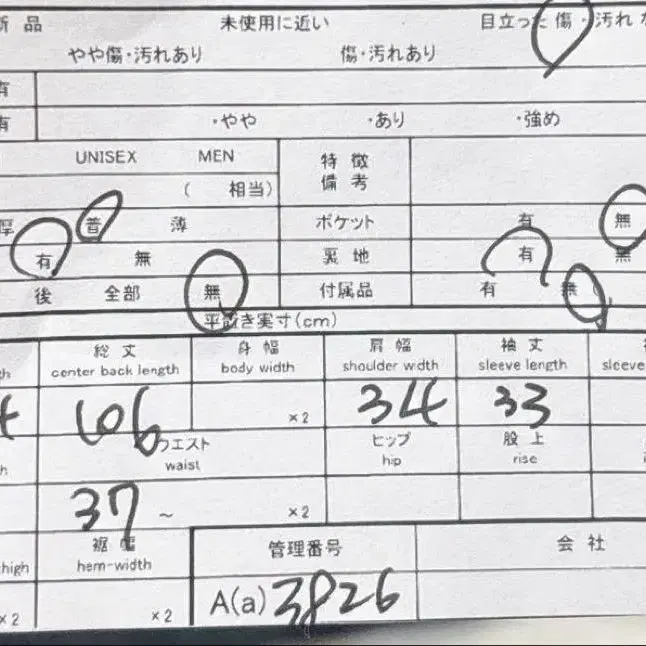 新 品 未使用に近い 目立った 傷・汚れ な
やや傷・汚れあり 傷・汚れあり
有
有 ・やや ・あり ・強め
UNISEX MEN 特 徴
備 考
( 相当)
厚 普 薄 ポケット 有 無
有 無 裏 地 有 無
後 全部 無 付属品 有 無
平置き実寸(cm)
総 丈 身 幅 肩 幅 袖 丈
gh center back length body width shoulder wdth sleeve length sleeve
106 ×2 34 33
ウエスト ヒップ 股 上
h waist hip rise
37 ~ ×2
裾 幅 管理番号 会 社
high hem-width
×2 ×2 A(a) 3826